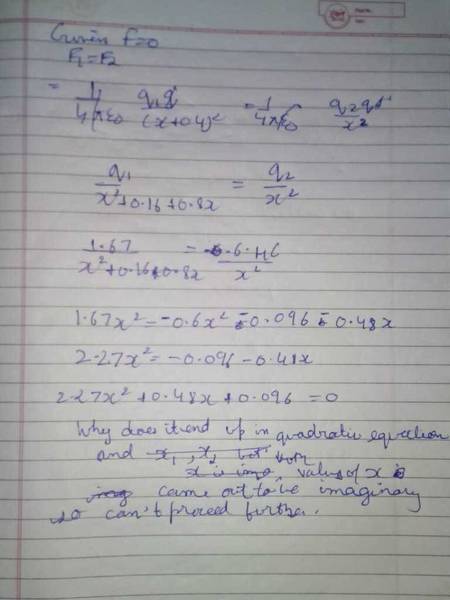 Given F=0
F₁=F₂
= 1/4πε₀ q₁q/(x+0.4)² = 1/4πε₀ q₂q/x²
q₁/x²+0.16+0.8x = q₂/x²
1.67/x²+0.16+0.8x = -0.6 μC/x²
1.67x² = -0.6x² - 0.096 - 0.48x
2.27x² = -0.096 - 0.48x
2.27x² + 0.48x + 0.096 = 0
Why does it end up in quadratic equation
and both
values of x
came out to be imaginary
so can't proceed further.